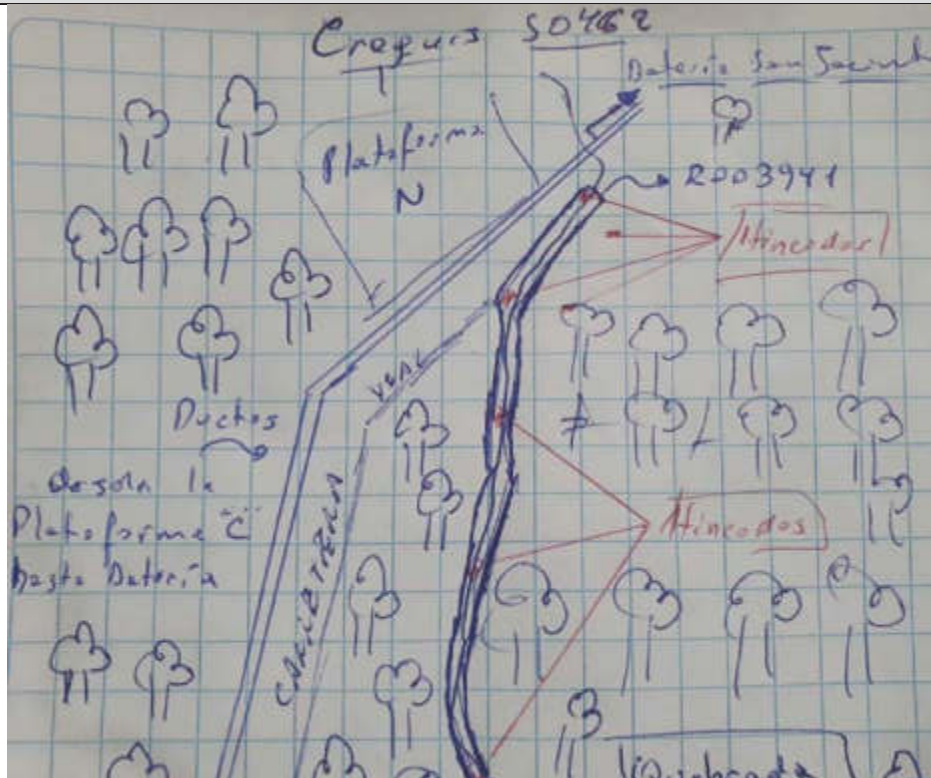 Croquis S0462
Bateria San Jacinto
Plataforma
N
R003941
Hincados
VEAL
Ductos
desde la
Plataforma "C"
hasta Bateria
CARRETERA
Hincados